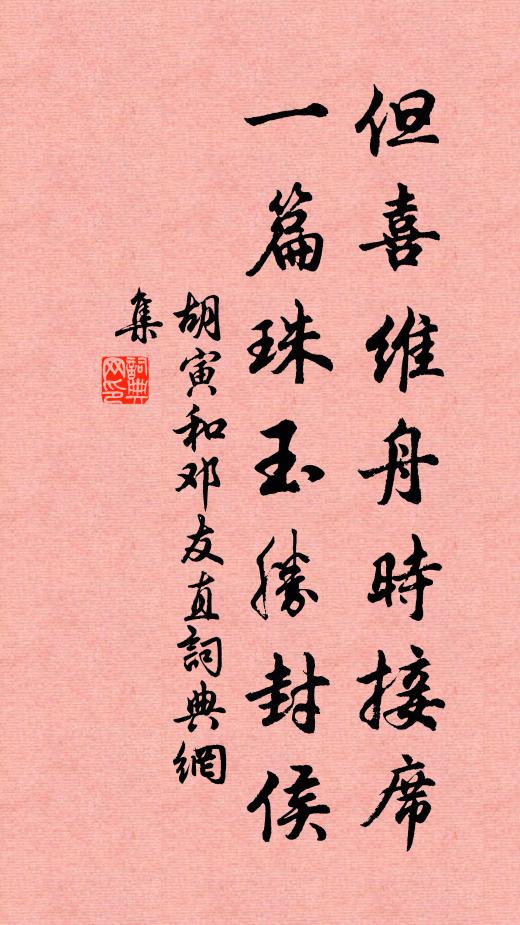 但喜维舟時接席
一篇珠玉勝封侯
胡寅和邓友直詞典網
集
詞典
网印